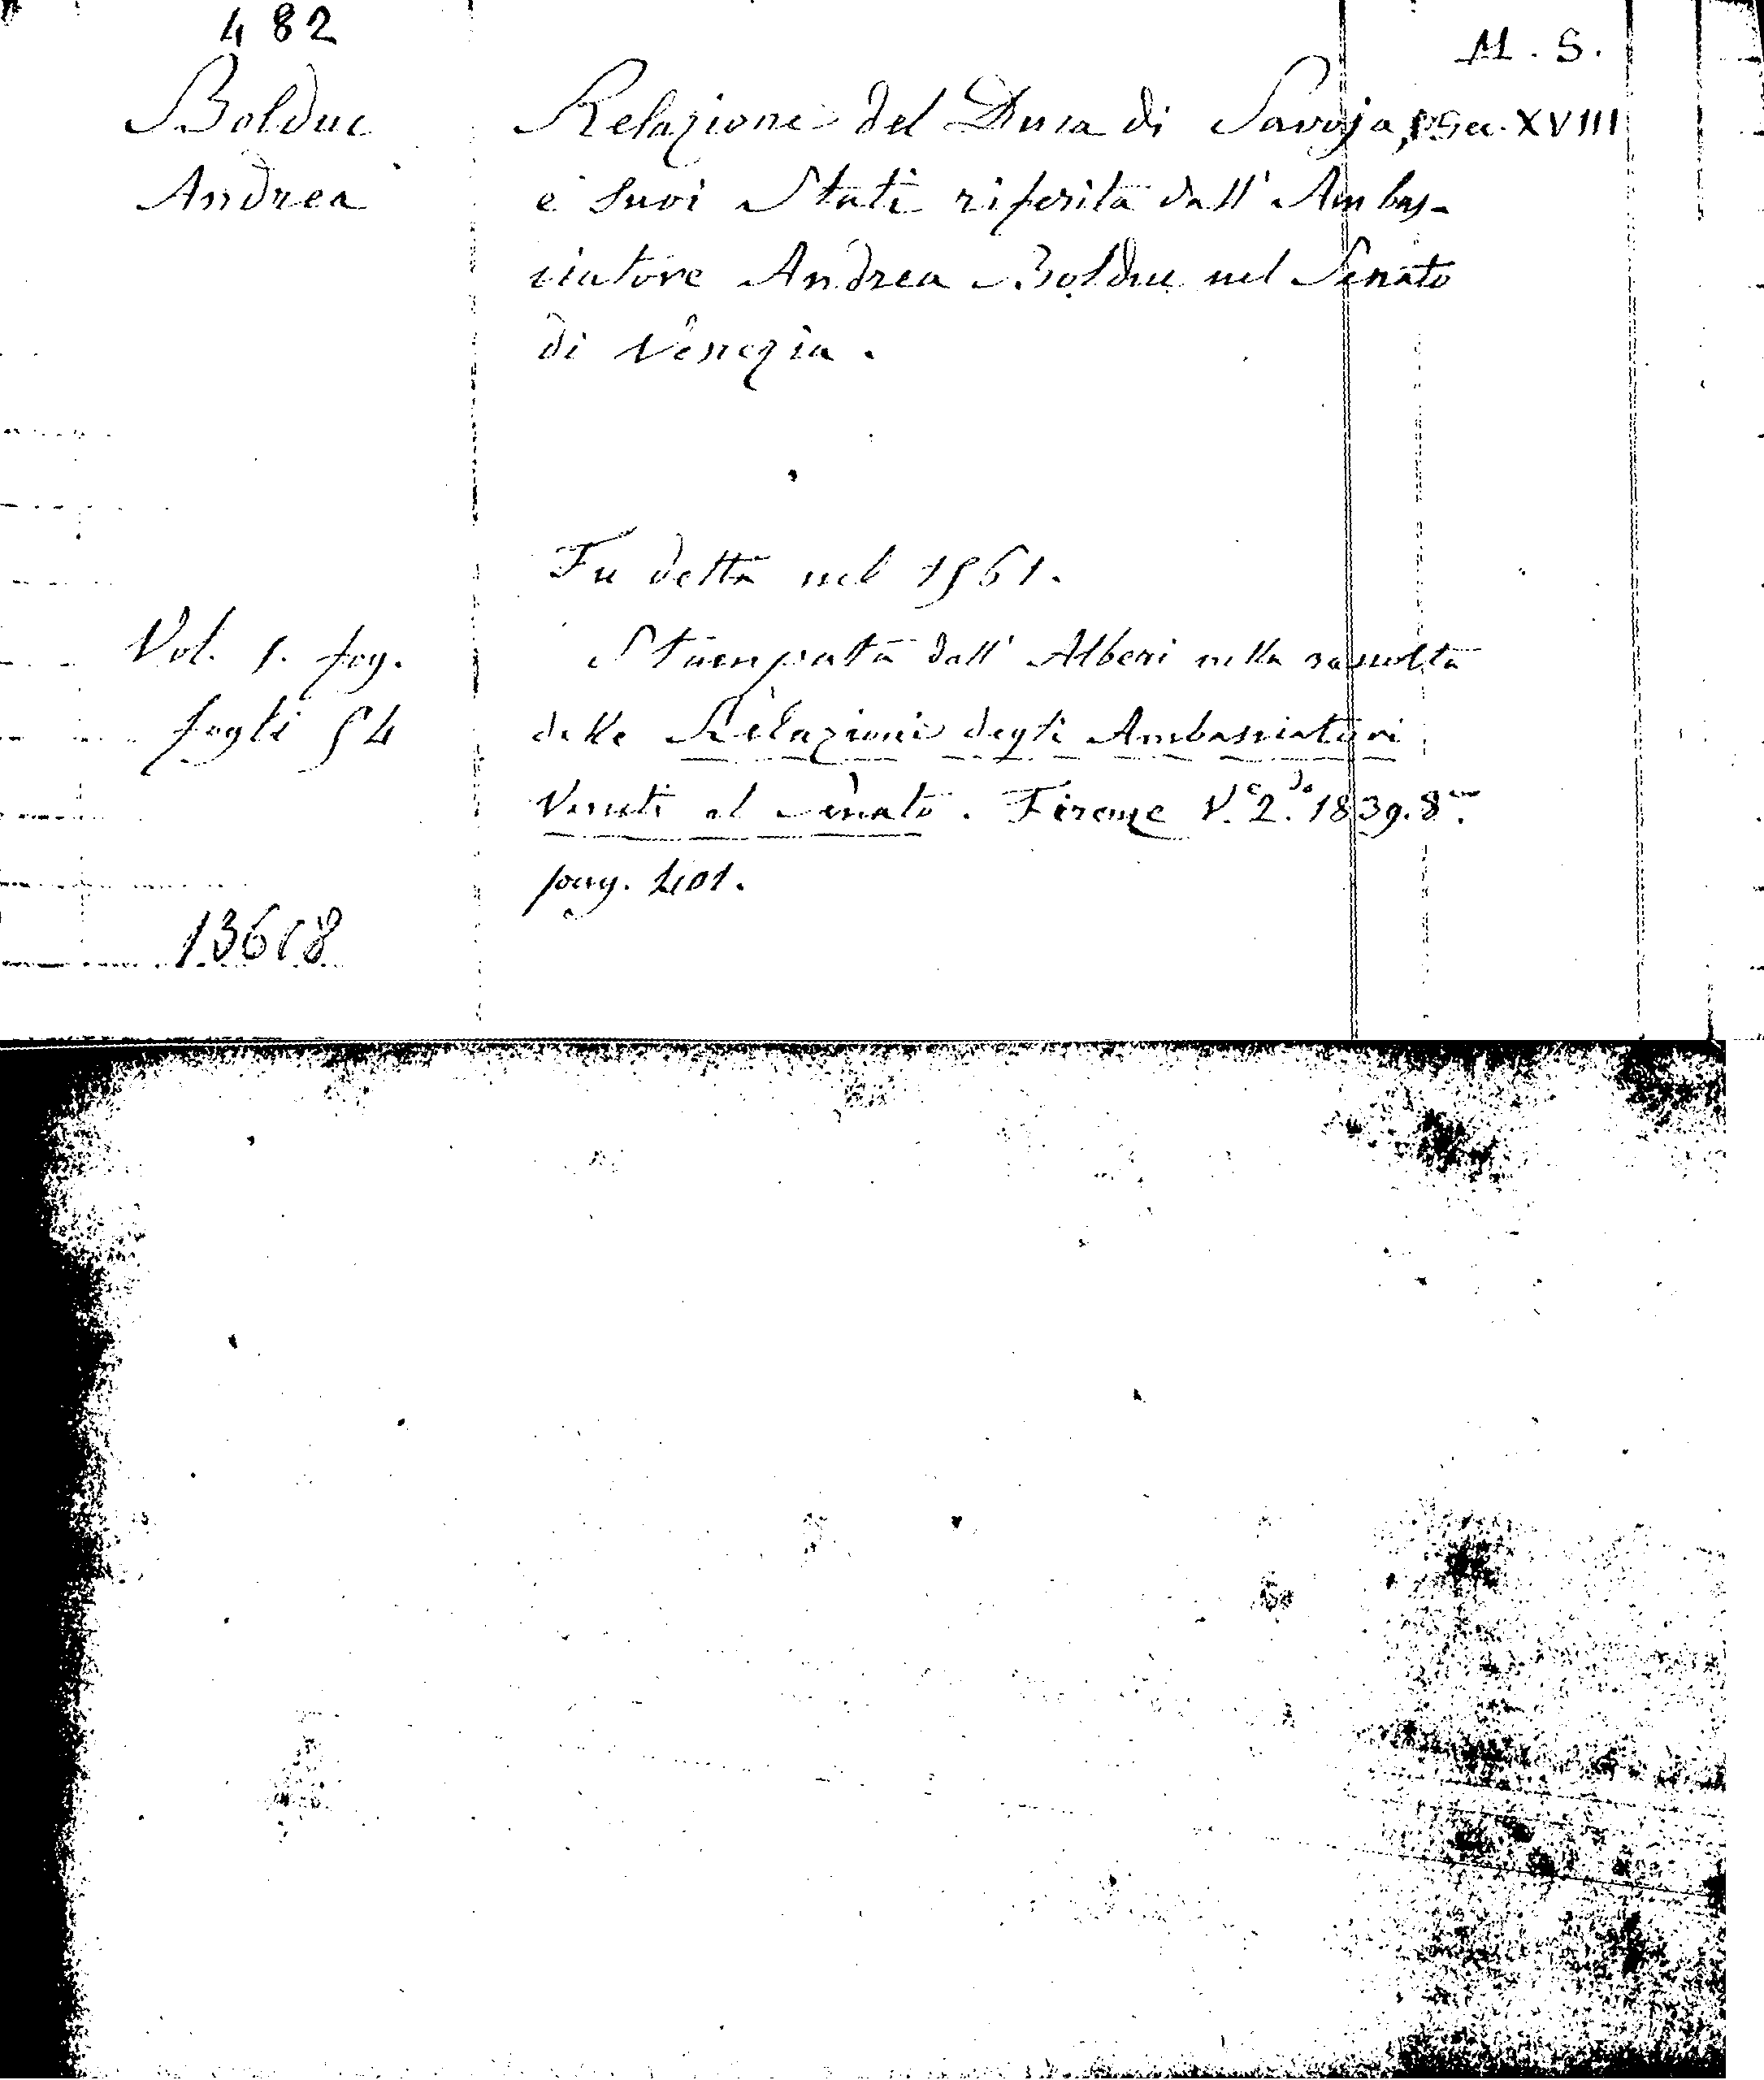 482
M. S.
Bolduc
Andrea
Relazione del Duca di Savoja, Sec. XVIII
e suoi Stati riferita dall' Ambas-
ciatore Andrea Bolduc nel Senato
di Venezia.
Fu detta nel 1561.
Vol. 1. fog.
fogli 54
Stampata dall' Alberi nella raccolta
delle Relazioni degli Ambasciatori
Veneti al Senato. Firenze V.e 2.do 1839. 8.vo
pag. 401.
13618